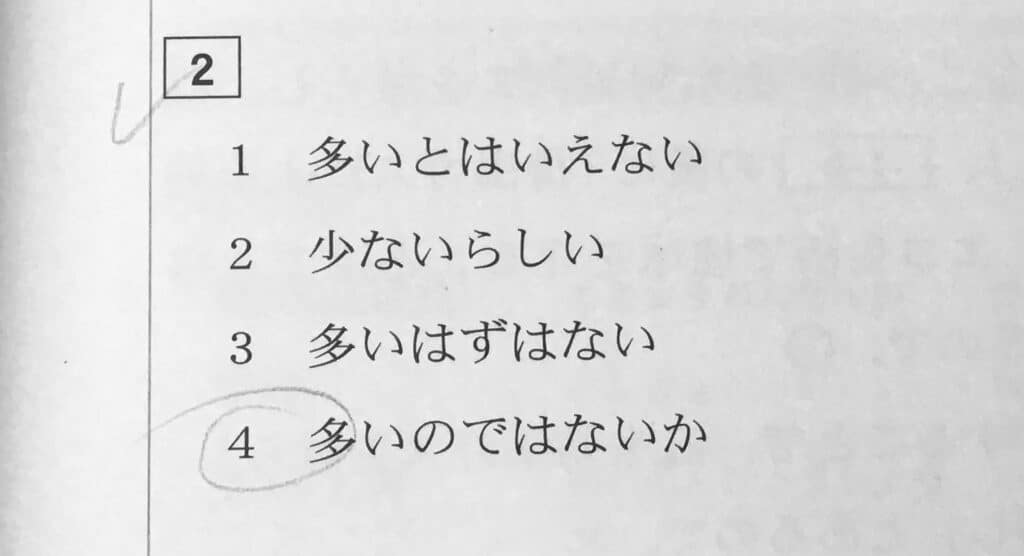 2
1 多いとはいえない
2 少ないらしい
3 多いはずはない
4 多いのではないか